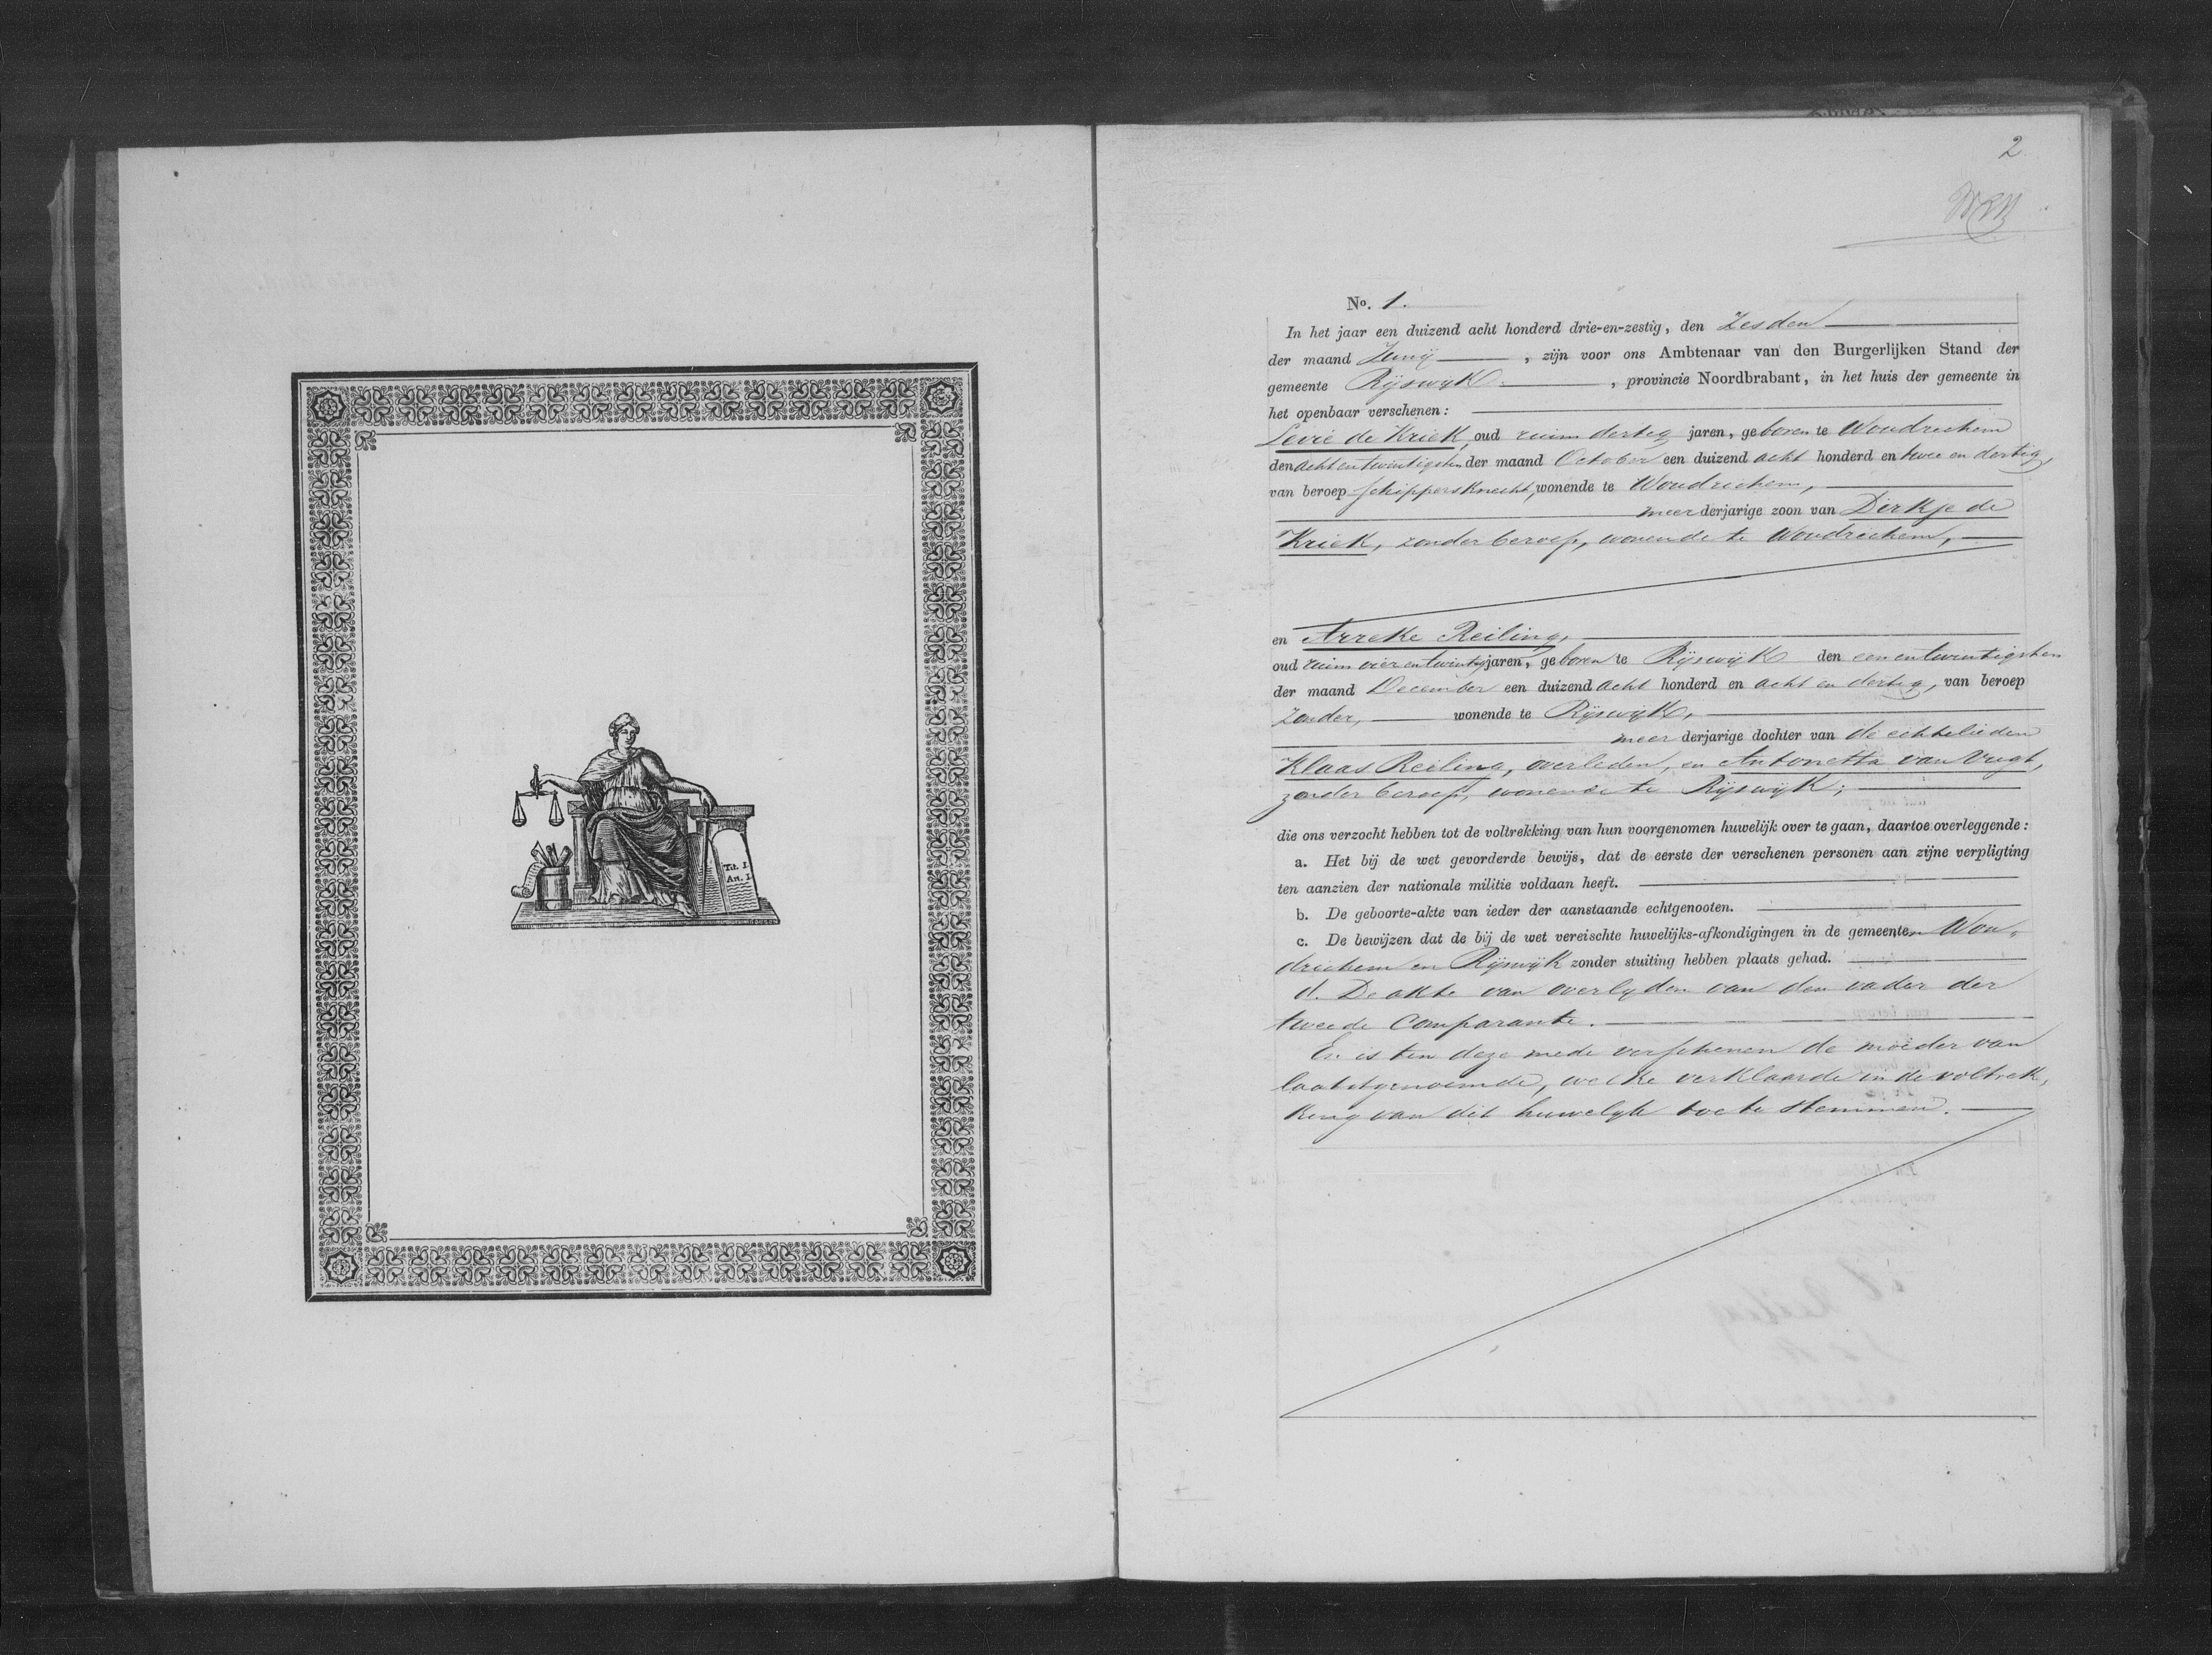 Tit. I.
Art. I.
2
No. 1.
In het jaar een duizend acht honderd drie-en-zestig, den Zesden
der maand Junij, zijn voor ons Ambtenaar van den Burgerlijken Stand der
gemeente Rijswijk, provincie Noordbrabant, in het huis der gemeente in
het openbaar verschenen:
Levie de Kriek, oud ruim dertig jaren, geboren te Woudrichem
den achtentwintigsten der maand October een duizend acht honderd en twee en dertig,
van beroep schippersknecht, wonende te Woudrichem,
meerderjarige zoon van Dirkje de
Kriek, zonder beroep, wonende te Woudrichem,
en Arreke Reiling,
oud ruim vierentwintig jaren, geboren te Rijswijk den eenentwintigsten
der maand December een duizend acht honderd en acht en dertig, van beroep
zonder, wonende te Rijswijk,
meerderjarige dochter van de echtelieden
Klaas Reiling, overleden, en Antonetta van Vugt,
zonder beroep, wonende te Rijswijk;
die ons verzocht hebben tot de voltrekking van hun voorgenomen huwelijk over te gaan, daartoe overleggende:
a. Het bij de wet gevorderde bewijs, dat de eerste der verschenen personen aan zijne verpligting
ten aanzien der nationale militie voldaan heeft.
b. De geboorte-akte van ieder der aanstaande echtgenooten.
c. De bewijzen dat de bij de wet vereischte huwelijks-afkondigingen in de gemeenten Wou-
drichem en Rijswijk zonder stuiting hebben plaats gehad.
d. De akte van overlyden van den vader der
tweede Comparante.
En is ten deze mede verschenen de moeder van
laatstgenoemde, welke verklaarde in de voltrek-
king van dit huwelyk toe te stemmen.